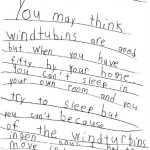 You may think
windtubins are good
but when you have
fifty by your home
You can't sleep in
your own room and you
try to sleep but
you can't because
of the windturbins